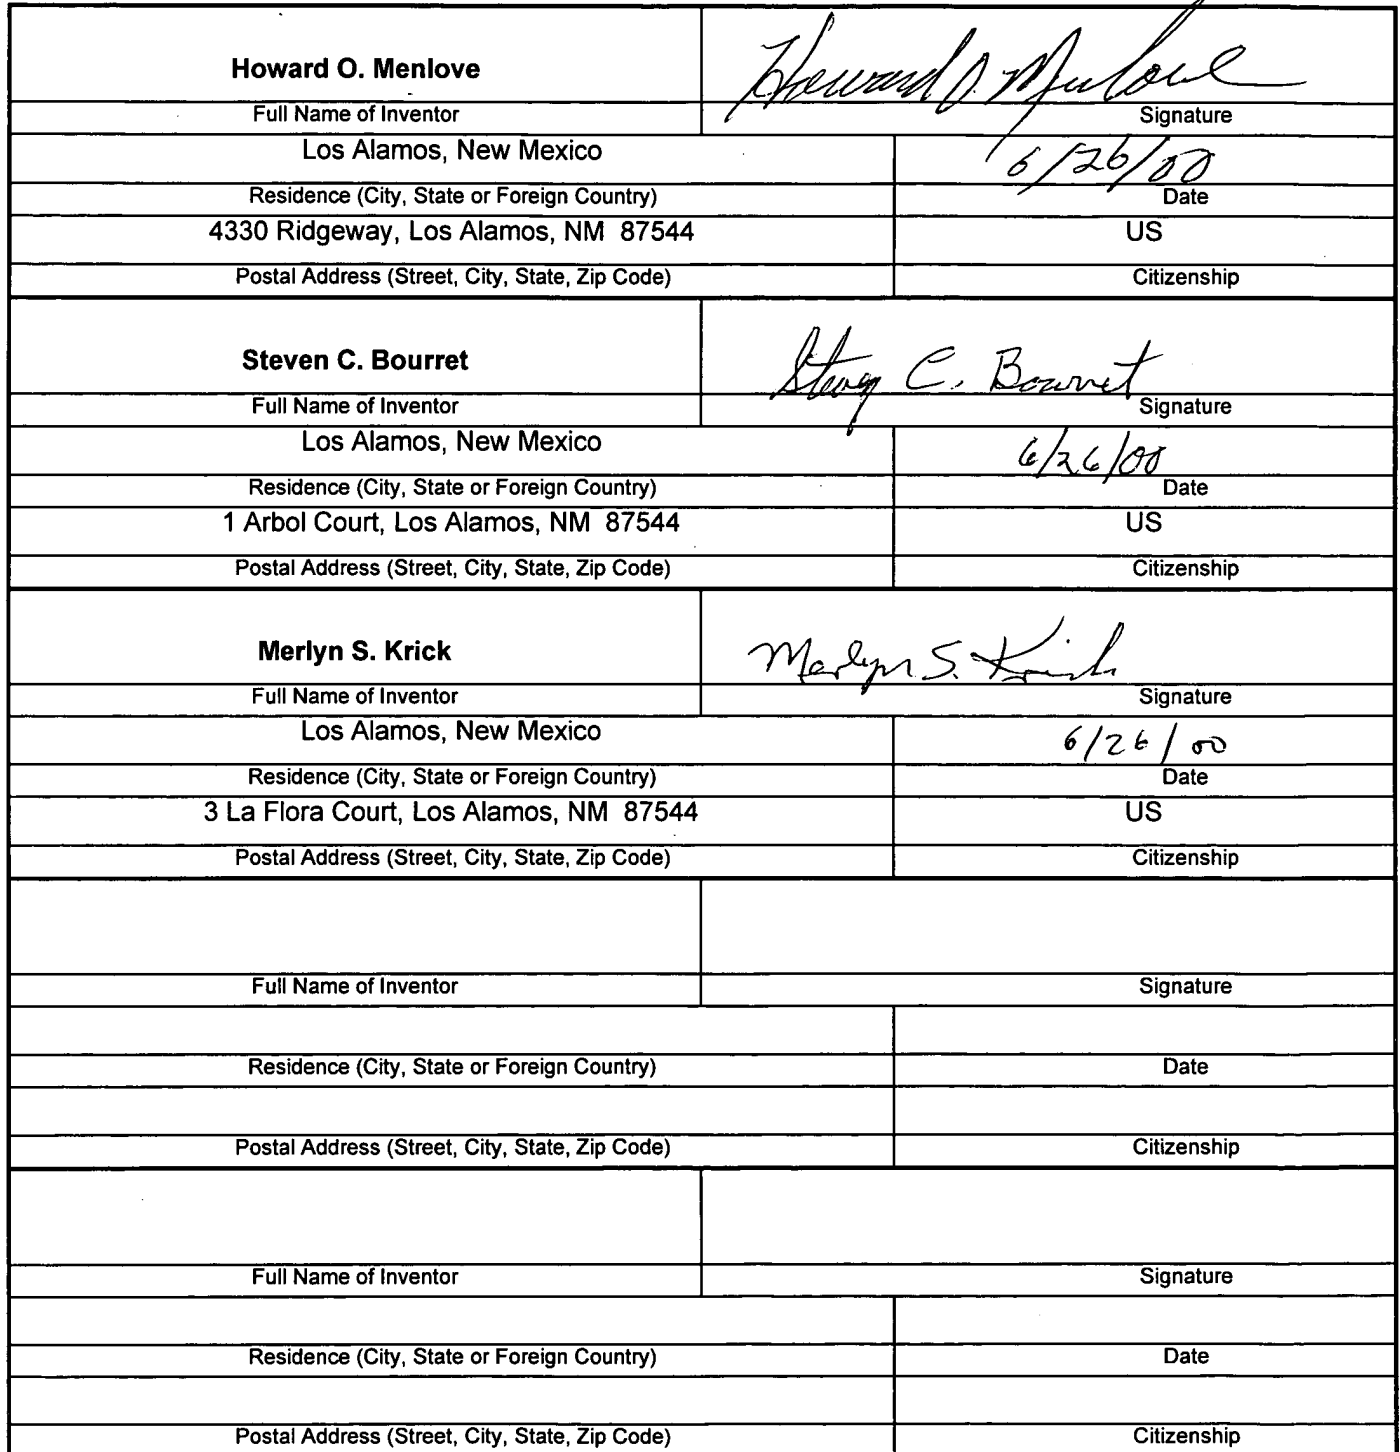 Howard O. Menlove
Howard O. Menlove
Full Name of Inventor
Signature
Los Alamos, New Mexico
6/26/00
Residence (City, State or Foreign Country)
Date
4330 Ridgeway, Los Alamos, NM 87544
US
Postal Address (Street, City, State, Zip Code)
Citizenship
Steven C. Bourret
Steven C. Bourret
Full Name of Inventor
Signature
Los Alamos, New Mexico
6/26/00
Residence (City, State or Foreign Country)
Date
1 Arbol Court, Los Alamos, NM 87544
US
Postal Address (Street, City, State, Zip Code)
Citizenship
Merlyn S. Krick
Merlyn S. Krick
Full Name of Inventor
Signature
Los Alamos, New Mexico
6/26/00
Residence (City, State or Foreign Country)
Date
3 La Flora Court, Los Alamos, NM 87544
US
Postal Address (Street, City, State, Zip Code)
Citizenship
Full Name of Inventor
Signature
Residence (City, State or Foreign Country)
Date
Postal Address (Street, City, State, Zip Code)
Citizenship
Full Name of Inventor
Signature
Residence (City, State or Foreign Country)
Date
Postal Address (Street, City, State, Zip Code)
Citizenship